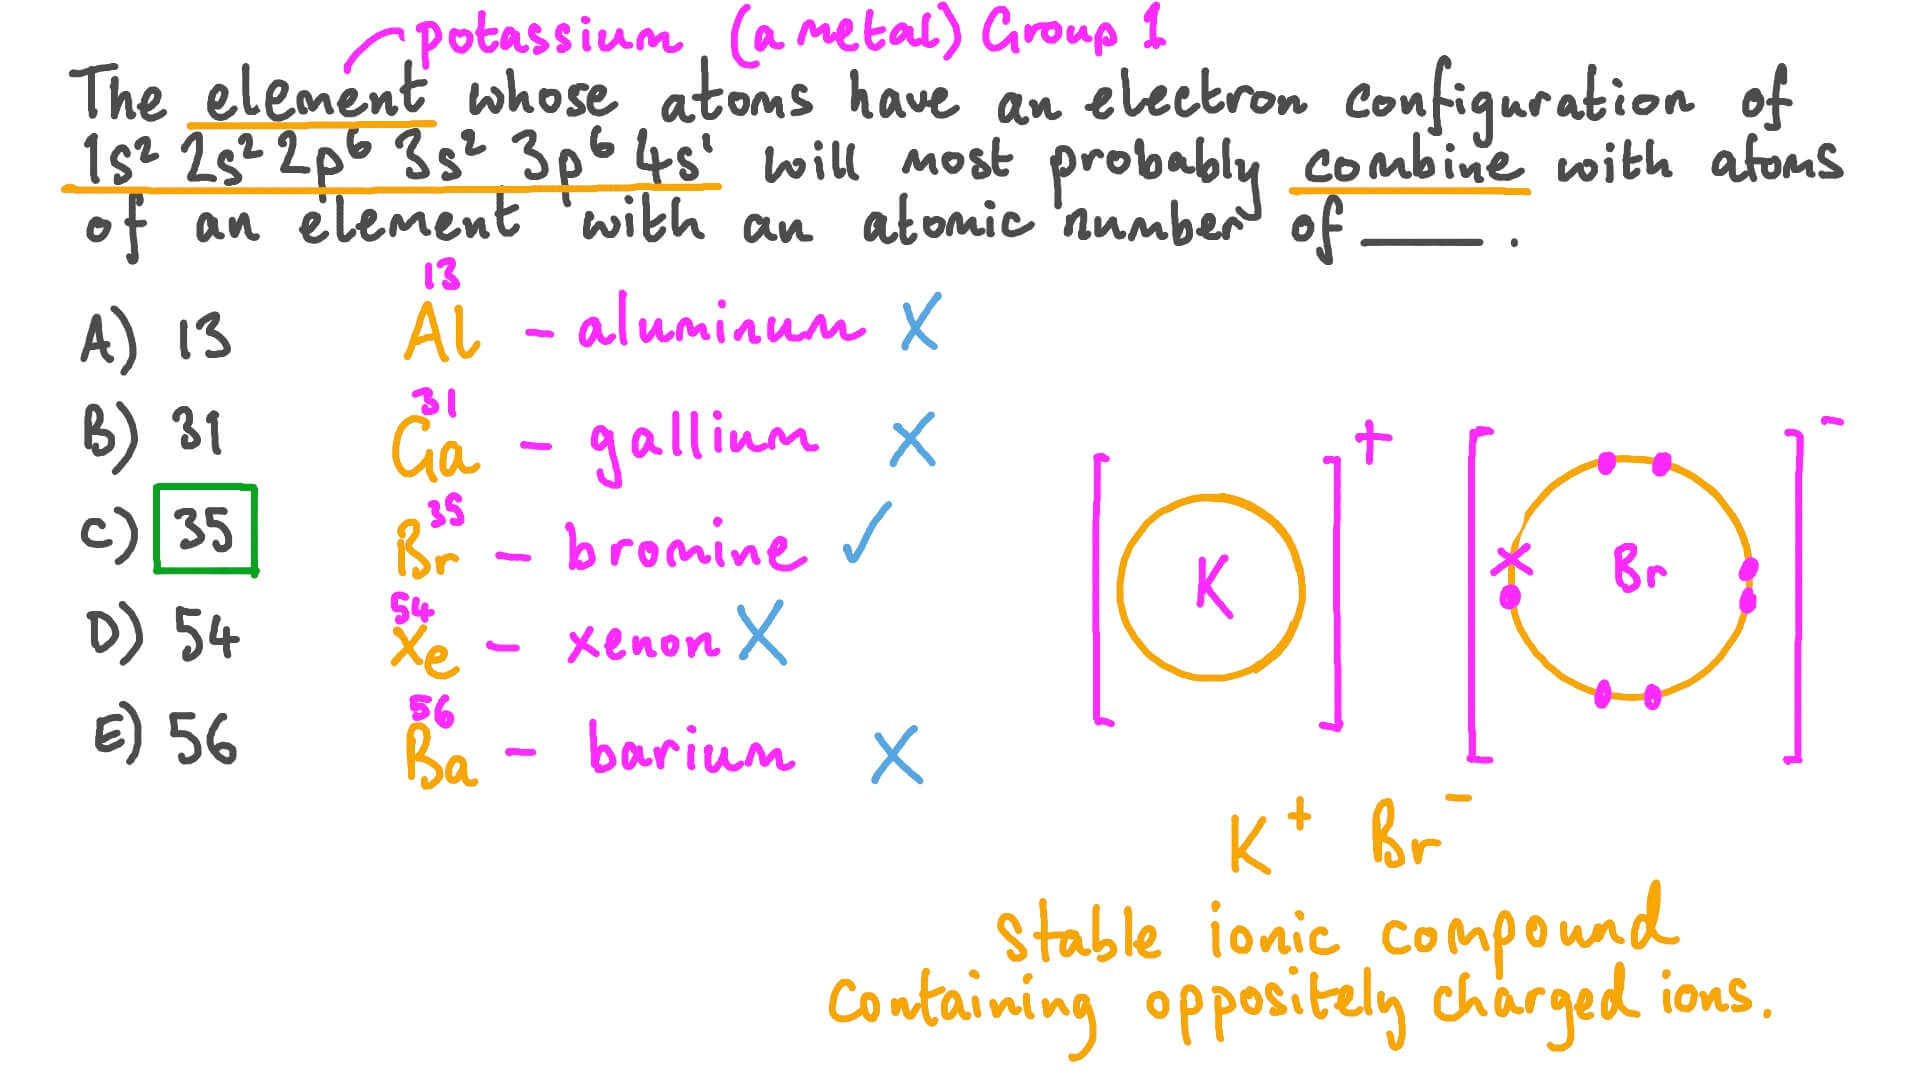 potassium (a metal) Group 1
The element whose atoms have an electron configuration of
1s² 2s² 2p⁶ 3s² 3p⁶ 4s¹ will most probably combine with atoms
of an element with an atomic number of ____ .
13
A) 13 Al - aluminum X
31
B) 31 Ga - gallium X
35
C) 35 Br - bromine ✓
54
D) 54 Xe - xenon X
56
E) 56 Ba - barium X
[K]⁺ [Br]⁻
K⁺ Br⁻
Stable ionic compound
containing oppositely charged ions.